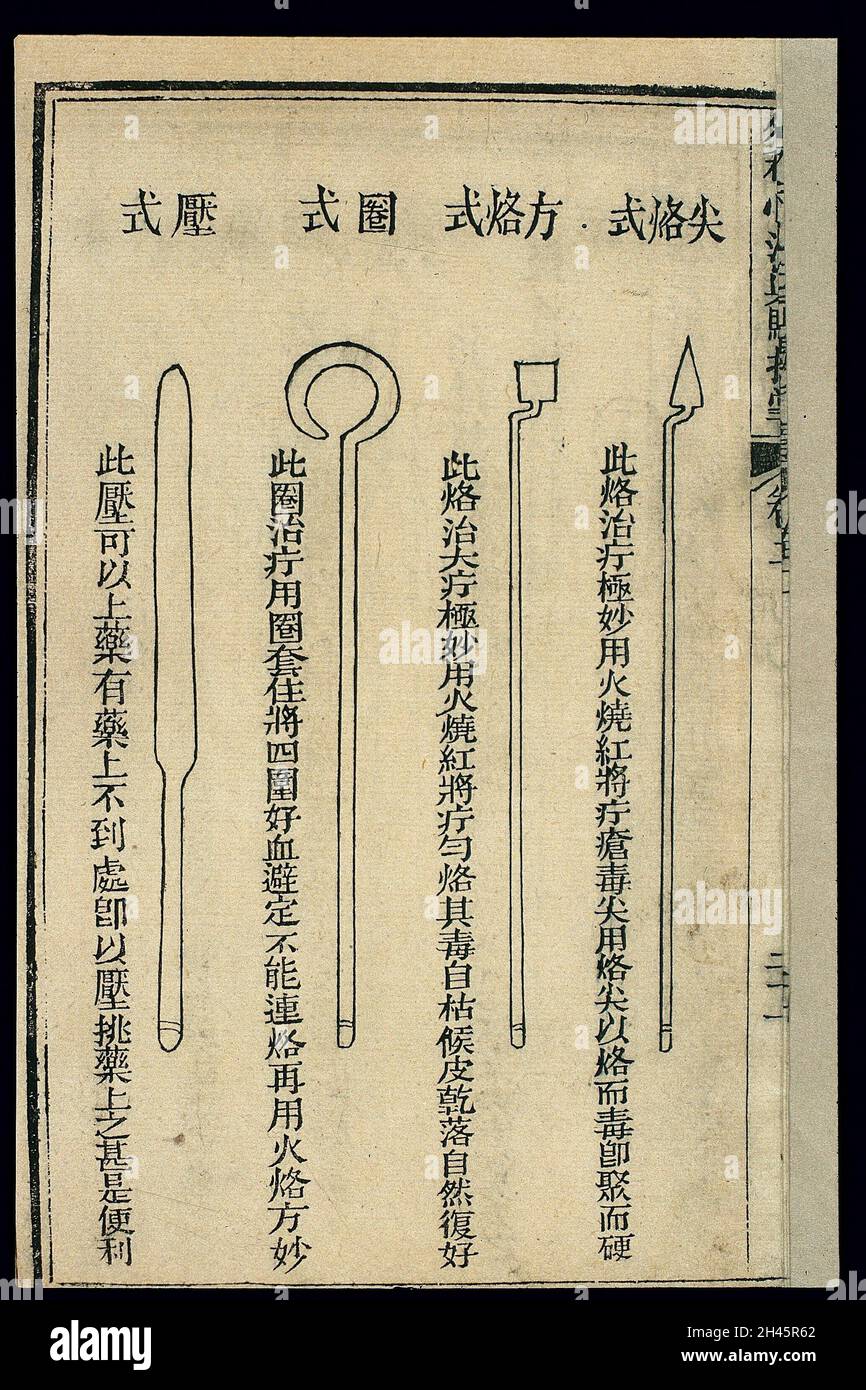 尖烙式
方烙式
圈式
壓式
此烙治疔極妙用火燒紅將疔瘡毒尖用烙尖以烙而毒卽聚而硬
此烙治大疔極妙用火燒紅將疔勻烙其毒自枯候皮乾落自然復好
此圈治疔用圈套住將四圍好血避定不能連烙再用火烙方妙
此壓可以上藥有藥上不到處卽以壓挑藥上之甚是便利
alamy
Image ID: 2H45R62
www.alamy.com